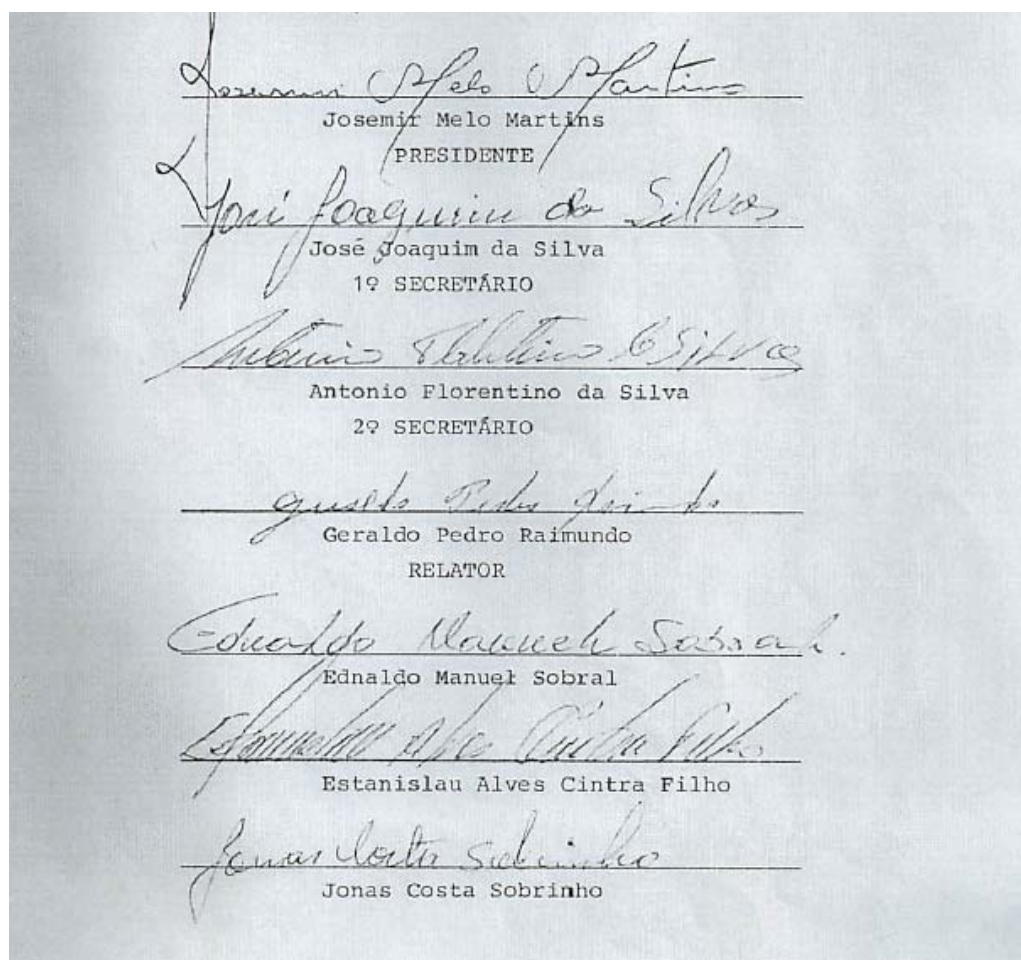 Josemir Melo Martins
Josemir Melo Martins
PRESIDENTE
José Joaquim da Silva
José Joaquim da Silva
1º SECRETÁRIO
Antonio Florentino da Silva
2º SECRETÁRIO
Geraldo Pedro Raimundo
RELATOR
Ednaldo Manuel Sobral
Ednaldo Manuel Sobral
Estanislau Alves Cintra Filho
Estanislau Alves Cintra Filho
Jonas Costa Sobrinho
Jonas Costa Sobrinho